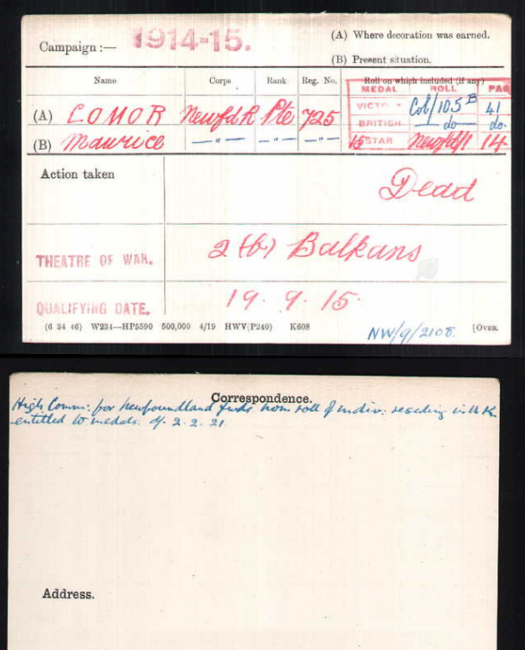 Campaign :— 1914-15.
(A) Where decoration was earned.
(B) Present situation.
Name Corps Rank Reg. No. Roll on which included (if any)
MEDAL ROLL PAG
(A) COMOR Newfd R Pte 725 VICTO Col/105 B 41
(B) Maurice —"— —"— —"— BRITISH do do.
15 STAR Newfd/1 14
Action taken
Dead
THEATRE OF WAR. 2 (b) Balkans
QUALIFYING DATE. 19. 9. 15.
(6 34 46) W234—HP5590 500,000 4/19 HWV(P240) K608 NW/9/2108. [OVER.
Correspondence.
High Comm: for Newfoundland fwds nom roll of indiv: residing in U.K.
entitled to medals. d/ 2.2.21.
Address.